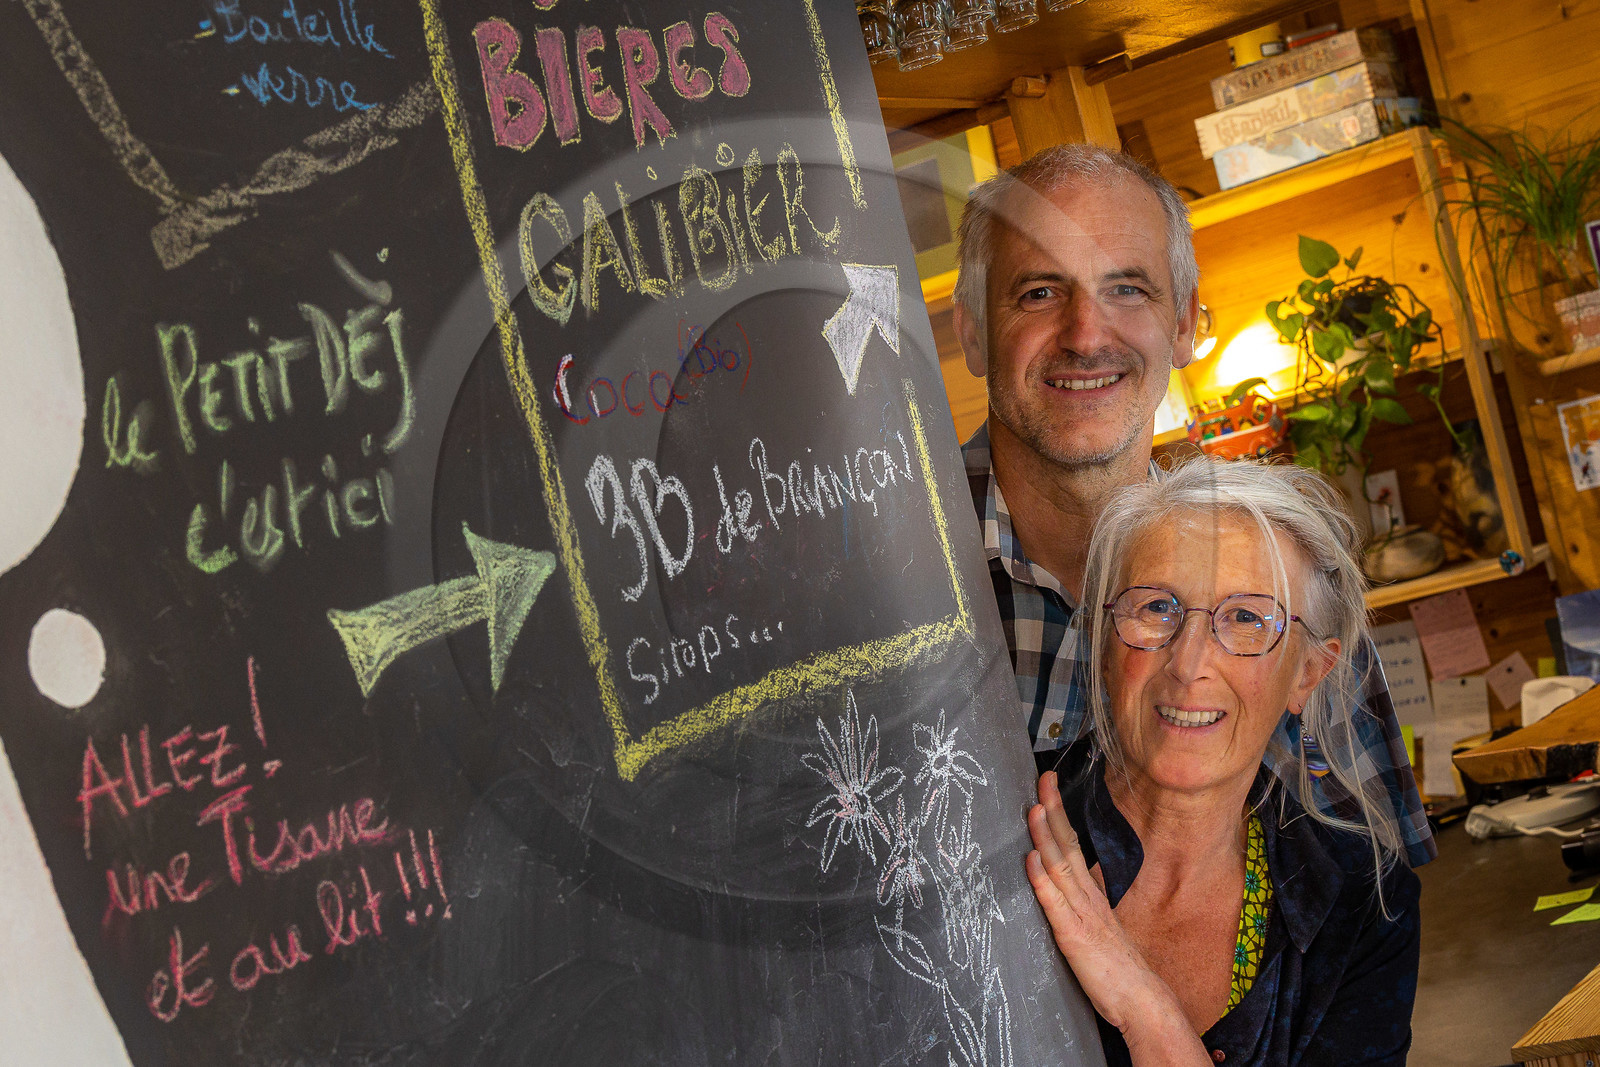 - Bouteille
- verre
BIERES
GALIBIER
Coca (Bio)
3B de BRIANÇON
Sirops...
le PETIT DÈJ
c'est ici
ALLEZ!
une Tisane
et au lit!!!
istanbul